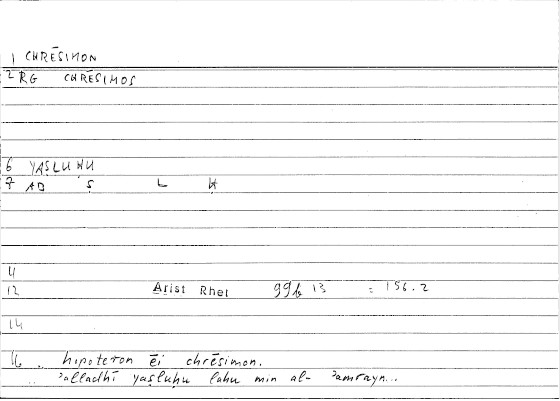 1 CHRĒSIMON
2 RG CHRĒSIMOS
6 YAṢLUḤU
7 AD Ṣ L Ḥ
4
12 Arist Rhet 99b 13 = 156.2
14
16 .. hipoteron ēi chrēsimon.
.. ʾalladhī yaṣluḥu lahu min al- ʾamrayn...